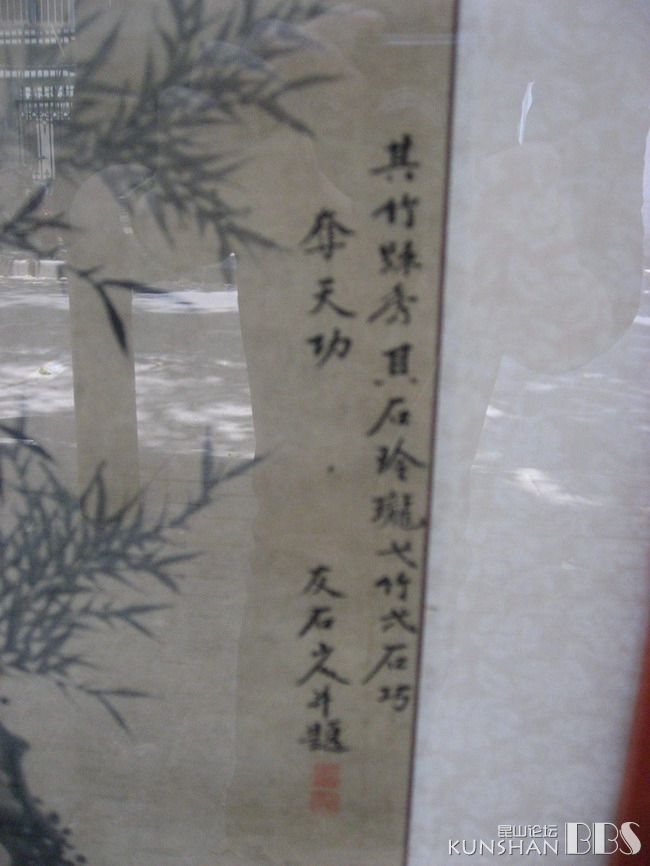 其竹踈秀其石玲瓏弌竹弌石巧
奪天功
友石山人并題
昆山论坛
KUNSHAN BBS